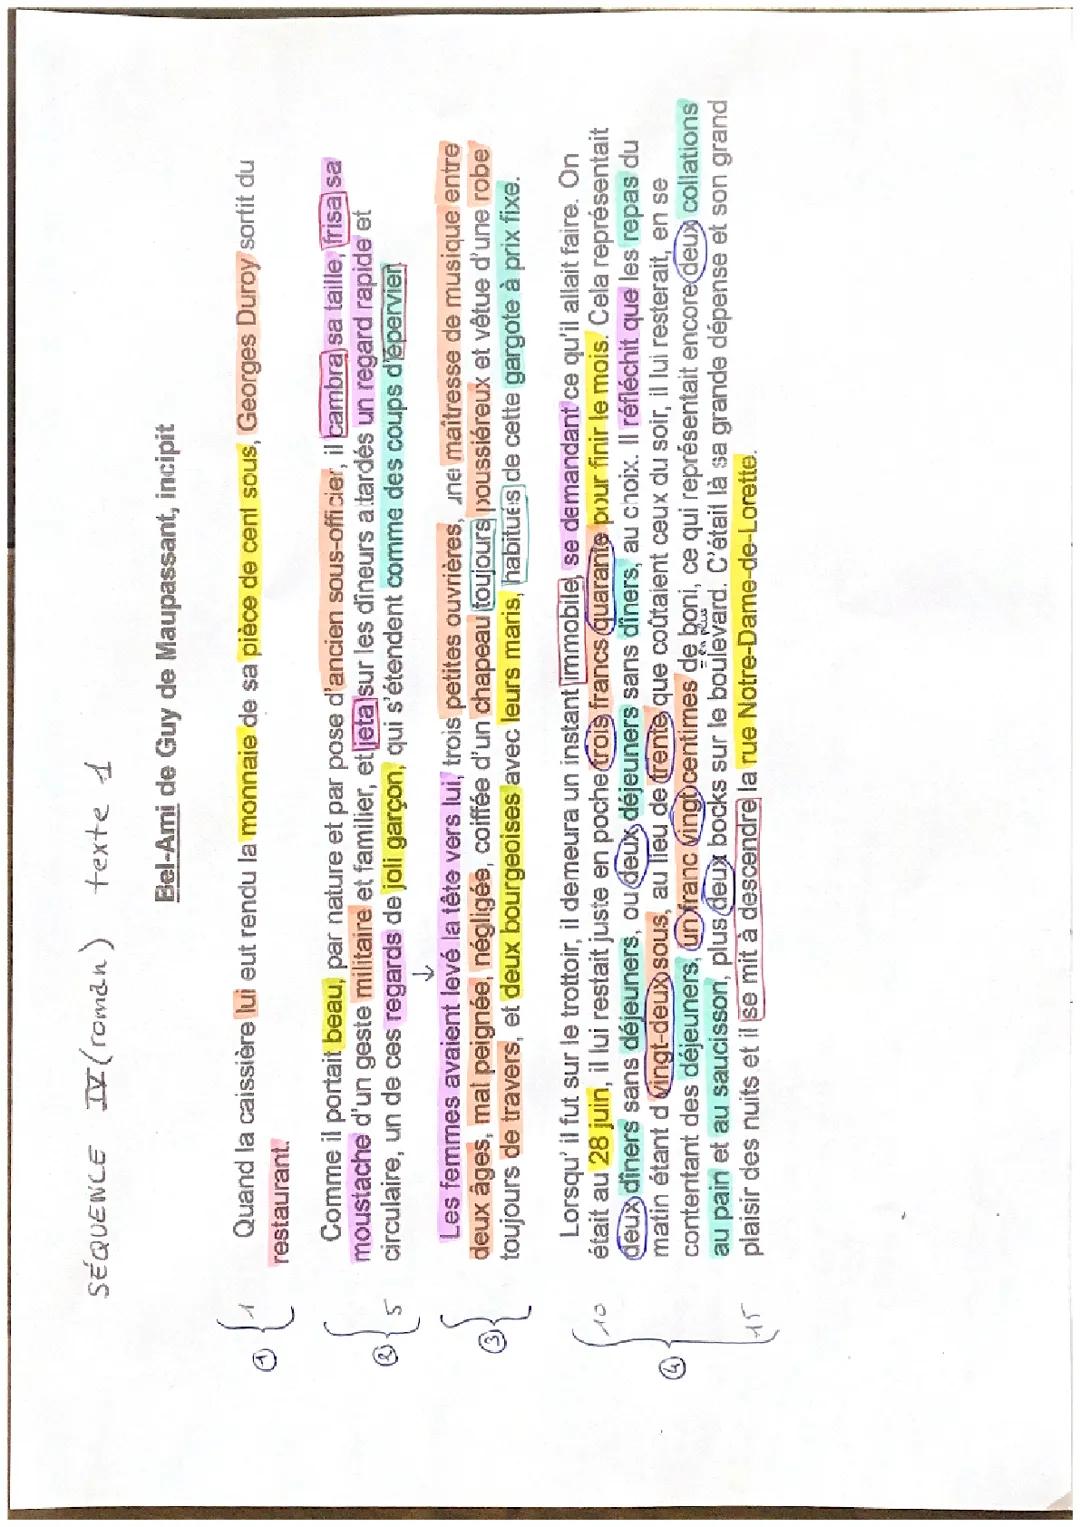 SÉQUENCE IV (roman) texte 1
Bel-Ami de Guy de Maupassant, incipit
① { 1 Quand la caissière lui eut rendu la monnaie de sa pièce de cent sous, Georges Duroy sortit du
restaurant.
Comme il portait beau, par nature et par pose d'ancien sous-officier, il cambra sa taille, frisa sa
② { moustache d'un geste militaire et familier, et jeta sur les dîneurs attardés un regard rapide et
5 circulaire, un de ces regards de joli garçon, qui s'étendent comme des coups d'épervier.
Les femmes avaient levé la tête vers lui, trois petites ouvrières, une maîtresse de musique entre
③ { deux âges, mal peignée, négligée, coiffée d'un chapeau toujours poussiéreux et vêtue d'une robe
toujours de travers, et deux bourgeoises avec leurs maris, habitués de cette gargote à prix fixe.
Lorsqu' il fut sur le trottoir, il demeura un instant immobile, se demandant ce qu'il allait faire. On
10 était au 28 juin, il lui restait juste en poche trois francs quarante pour finir le mois. Cela représentait
deux dîners sans déjeuners, ou deux déjeuners sans dîners, au choix. Il réfléchit que les repas du
④ { matin étant d vingt-deux sous, au lieu de trente que coûtaient ceux du soir, il lui resterait, en se
contentant des déjeuners, un franc vingt centimes de boni, ce qui représentait encore deux collations
= en plus
au pain et au saucisson, plus deux bocks sur le boulevard. C'était là sa grande dépense et son grand
15 plaisir des nuits et il se mit à descendre la rue Notre-Dame-de-Lorette.